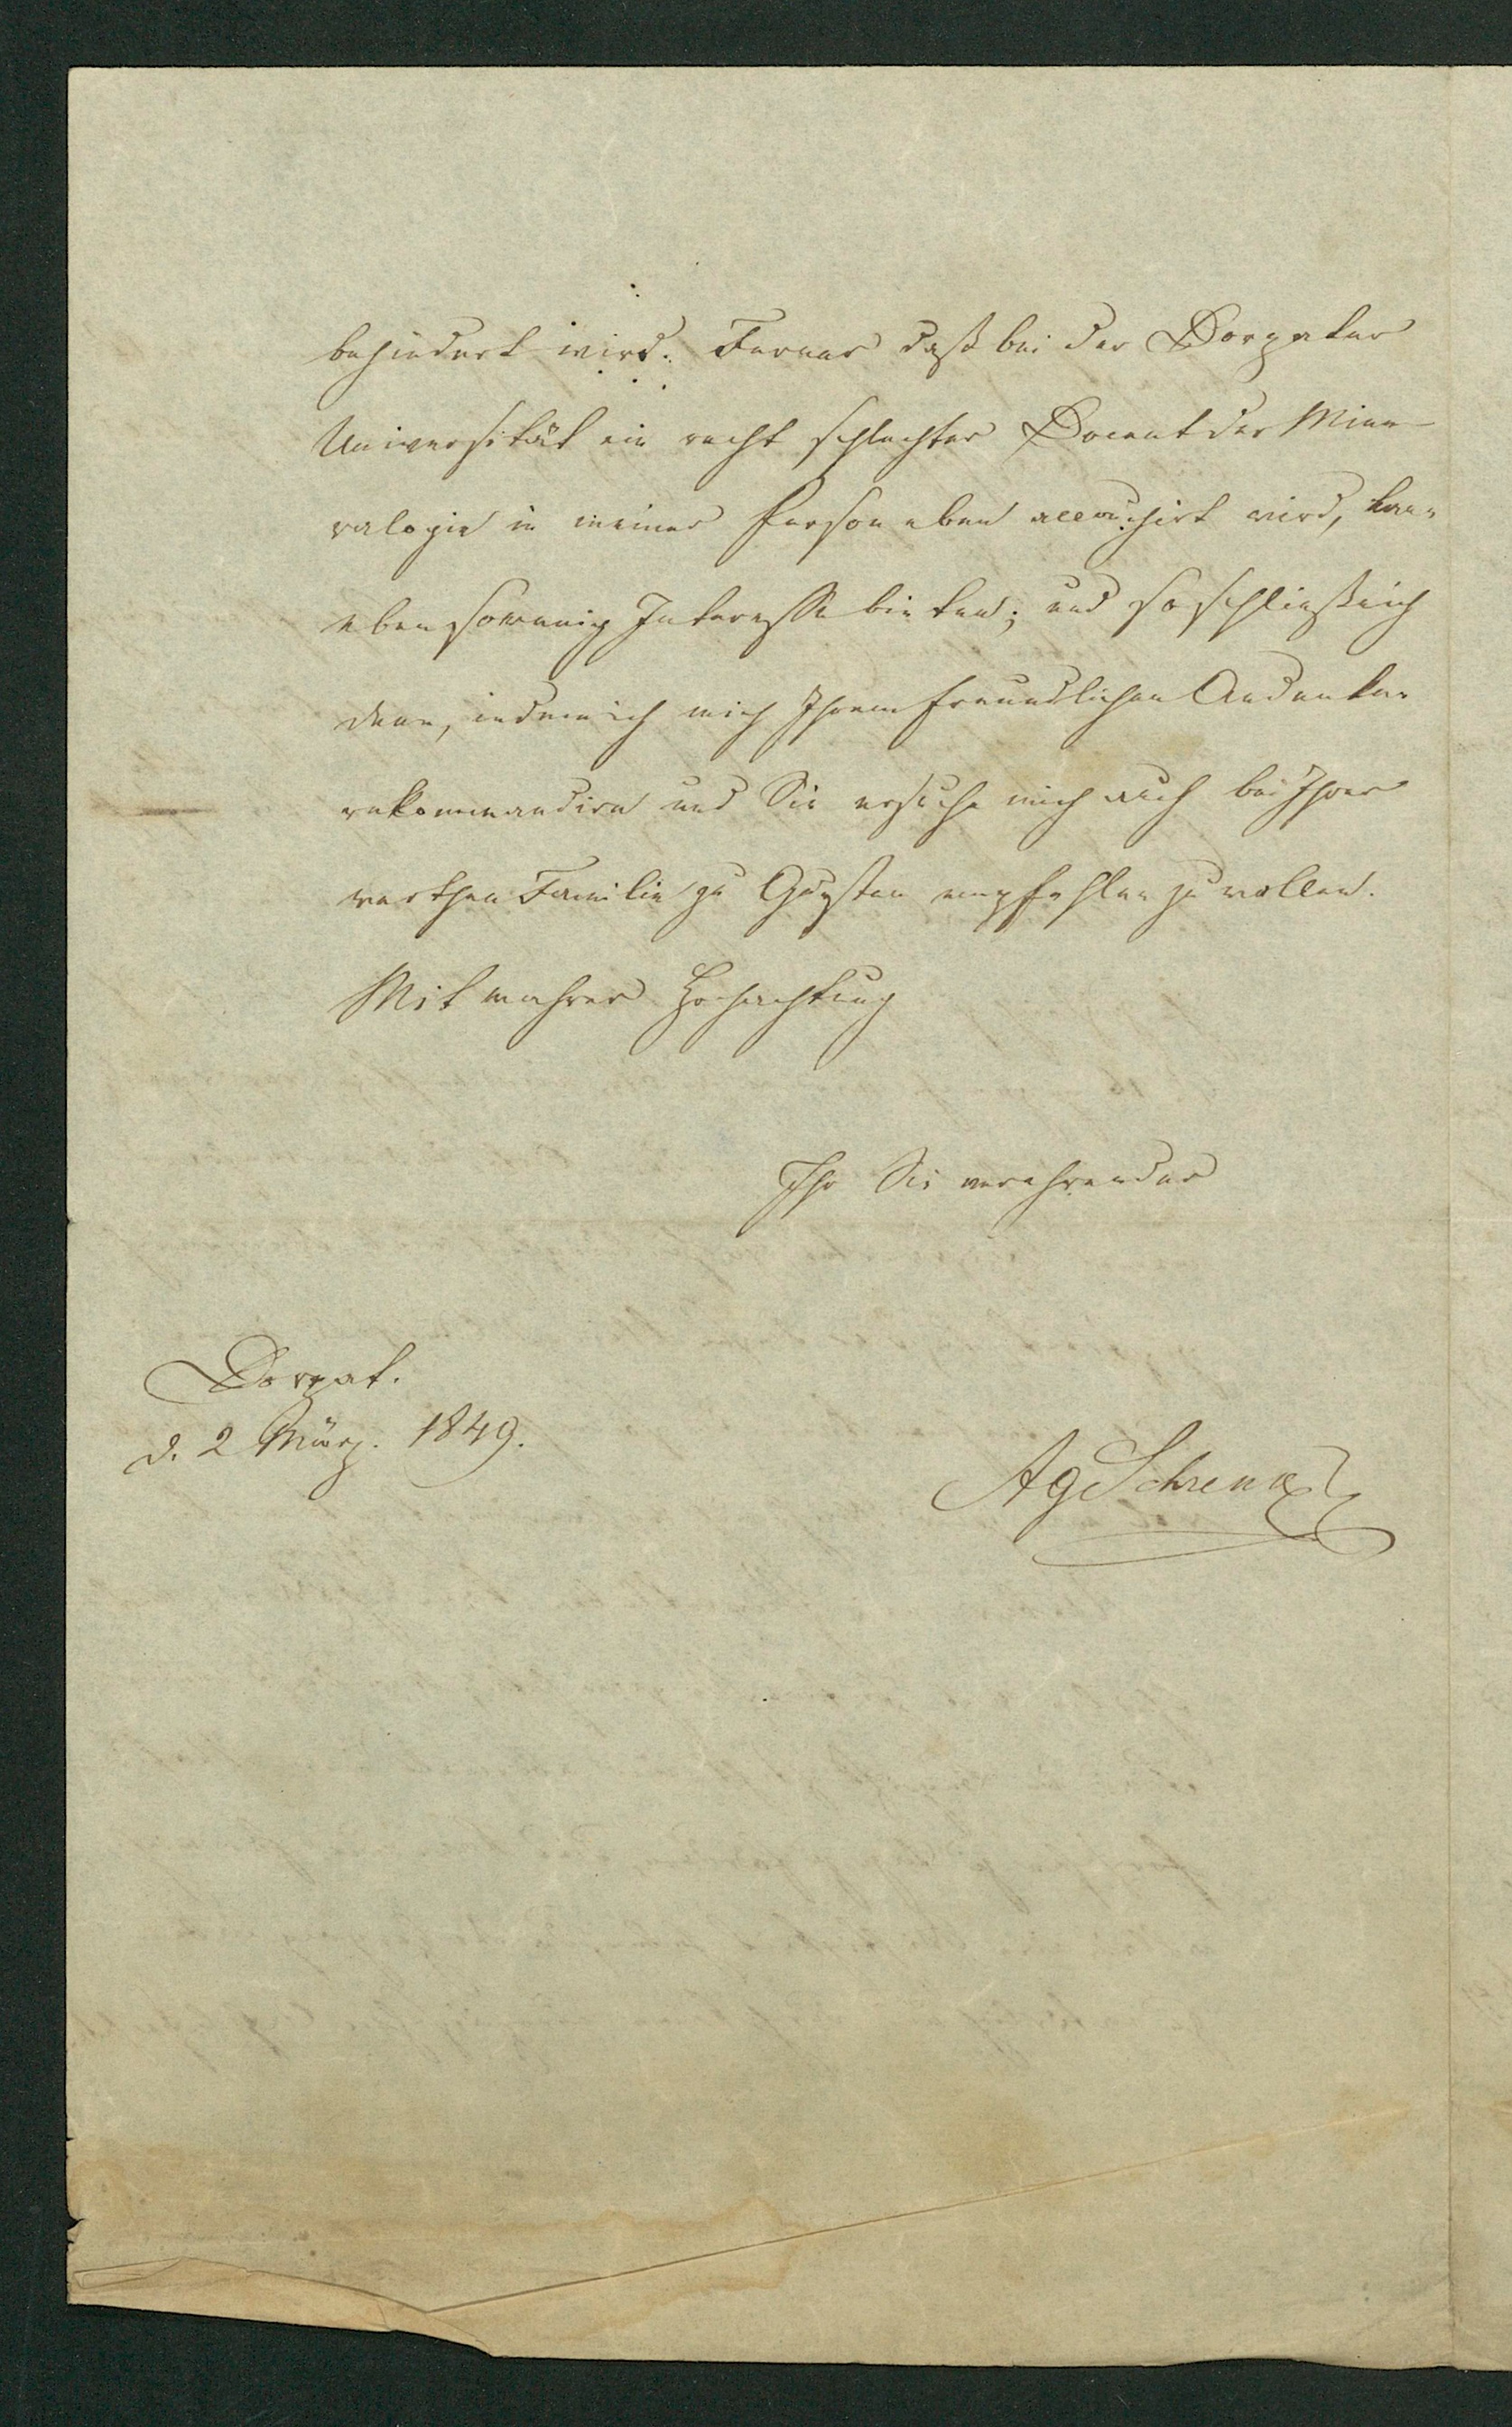 behindert wird. Ferner daß bei der Dorpater
Universität ein recht schlechter Docent der Mine-
ralogie in meiner Person eben accouchirt wird, kann
ebensowenig Interesse bieten; und so schließe ich
denn, indem ich mich Ihrem freundlichen Andenken
rekommandire und Sie ersuche mich auch bei Ihrer
werthen Familie zu Gunsten empfehlen zu wollen.
Mit wahrer Hochachtung
Ihr Sie verehrender
Dorpat.
d. 2 März. 1849.
AGSchrenk